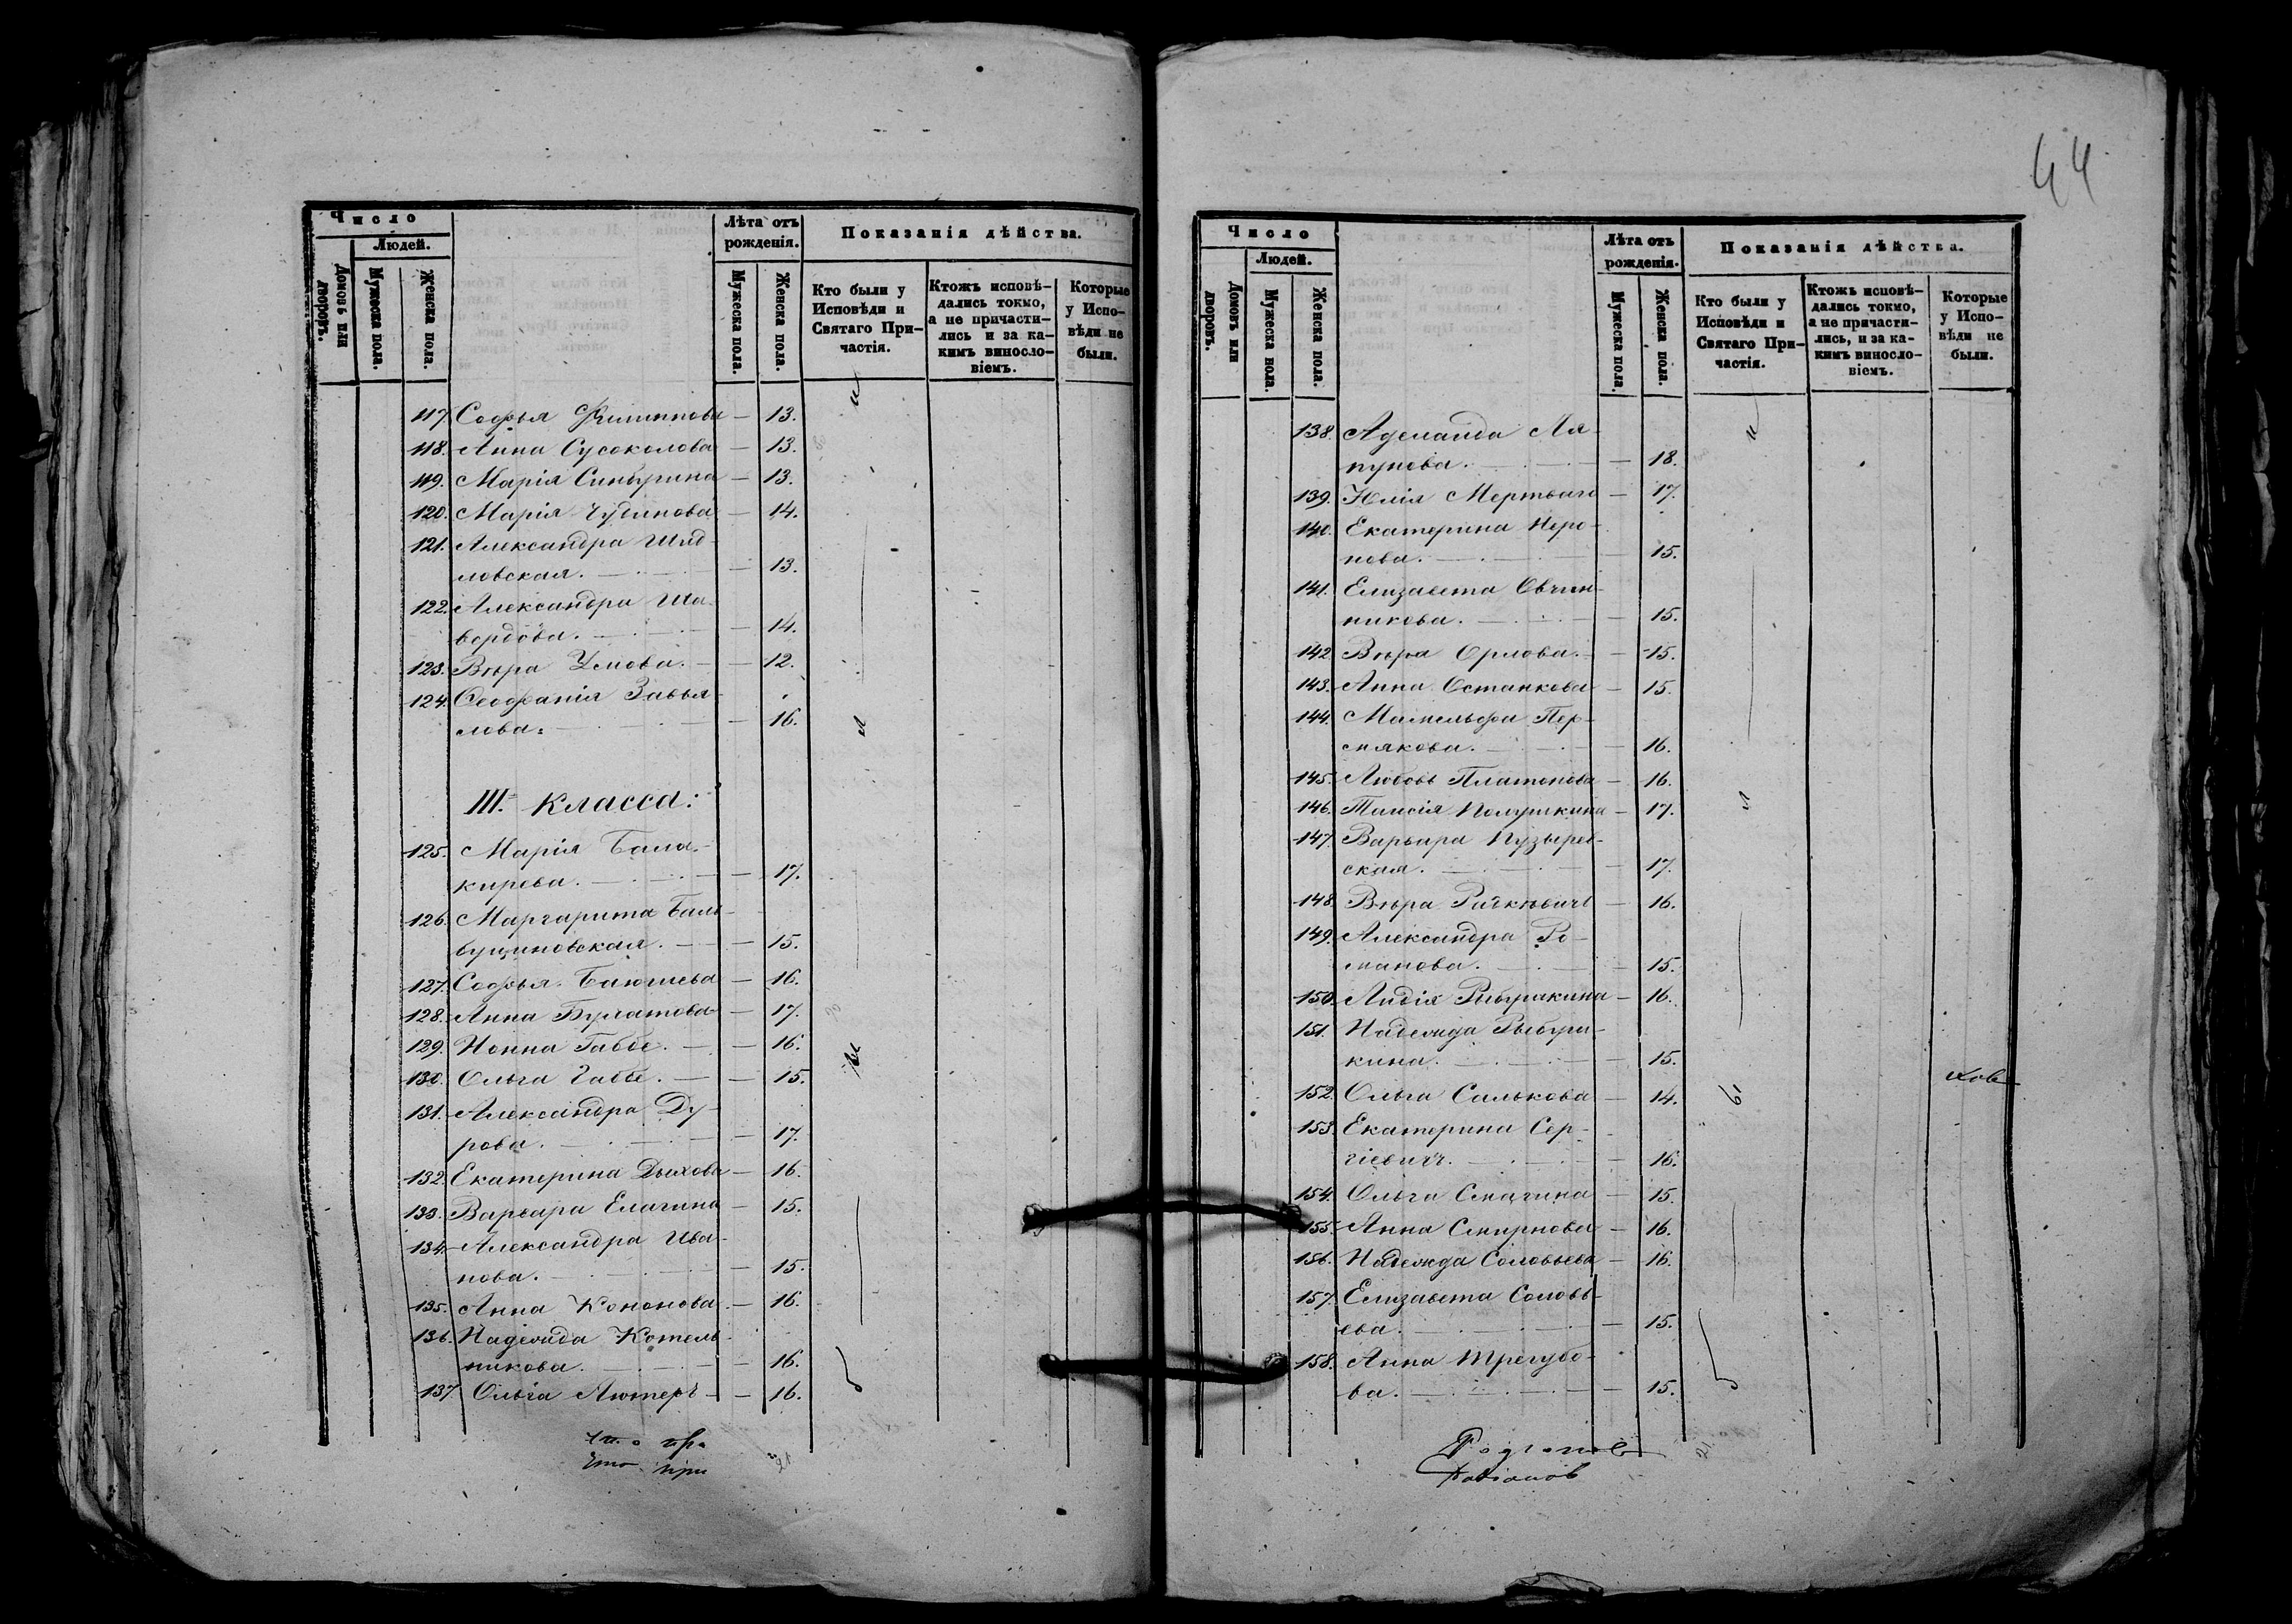 44
Число
Людей.
Домовъ или дворовъ.
Мужеска пола.
Женска пола.
Лѣта отъ рожденія.
Мужеска пола.
Женска пола.
Показанія дѣйства.
Кто были у
Исповѣди и
Святаго При-
частія.
Ктожъ исповѣ-
дались токмо,
а не причасти-
лись и за ка-
кимъ виносло-
віемъ.
Которые
у Испо-
вѣди не
были.
117. Софья Филиппова — 13.
118. Анна Сусоколова — 13.
119. Марія Синбугина — 13.
120. Марія Чубинова — 14.
121. Александра Шид-
ловская. — 13.
122. Александра Ша-
вердова. — 14.
123. Вѣра Умова. — 12.
124. Ѳеофанія Завья-
лова. — 16.
III. Класса:
125. Марія Бала-
кирева. — 17.
126. Маргарита Баль-
вущиновская. — 15.
127. Софья Баюшева — 16.
128. Анна Булатова — 17.
129. Нонна Габбе. — 16.
130. Ольга Габбе. — 15.
131. Александра Ду-
рова. — 17.
132. Екатерина Дыхова — 16.
133. Варвара Елагина — 15.
134. Александра Ива-
нова. — 15.
135. Анна Кононова. — 16.
136. Надежда Котель-
никова. — 16.
137. Ольга Лютеръ — 16.
Число
Людей.
Домовъ или дворовъ.
Мужеска пола.
Женска пола.
Лѣта отъ рожденія.
Мужеска пола.
Женска пола.
Показанія дѣйства.
Кто были у
Исповѣди и
Святаго При-
частія.
Ктожъ исповѣ-
дались токмо,
а не причасти-
лись, и за ка-
кимъ виносло-
віемъ.
Которые
у Испо-
вѣди не
были.
138. Аделаида Ля-
пунова. — 18.
139. Юлія Мертваго — 17.
140. Екатерина Неро-
нова. — 15.
141. Елизавета Овчин-
никова. — 15.
142. Вѣра Орлова. — 15.
143. Анна Останкова — 15.
144. Мамельфа Пер-
мякова. — 16.
145. Любовь Платонова — 16.
146. Таисія Полушкина — 17.
147. Варвара Пузырев-
ская. — 17.
148. Вѣра Рачкѣвичъ — 16.
149. Александра Ро-
манова. — 15.
150. Лидія Рыбушкина — 16.
151. Надежда Рыбуш-
кина. — 15.
152. Ольга Салькова — 14.
153. Екатерина Сер-
гіевичъ. — 16.
154. Ольга Смагина — 15.
155. Анна Смирнова — 16.
156. Надежда Соловьева — 16.
157. Елизавета Соловь-
ева. — 15.
158. Анна Трегубо-
ва. — 15.